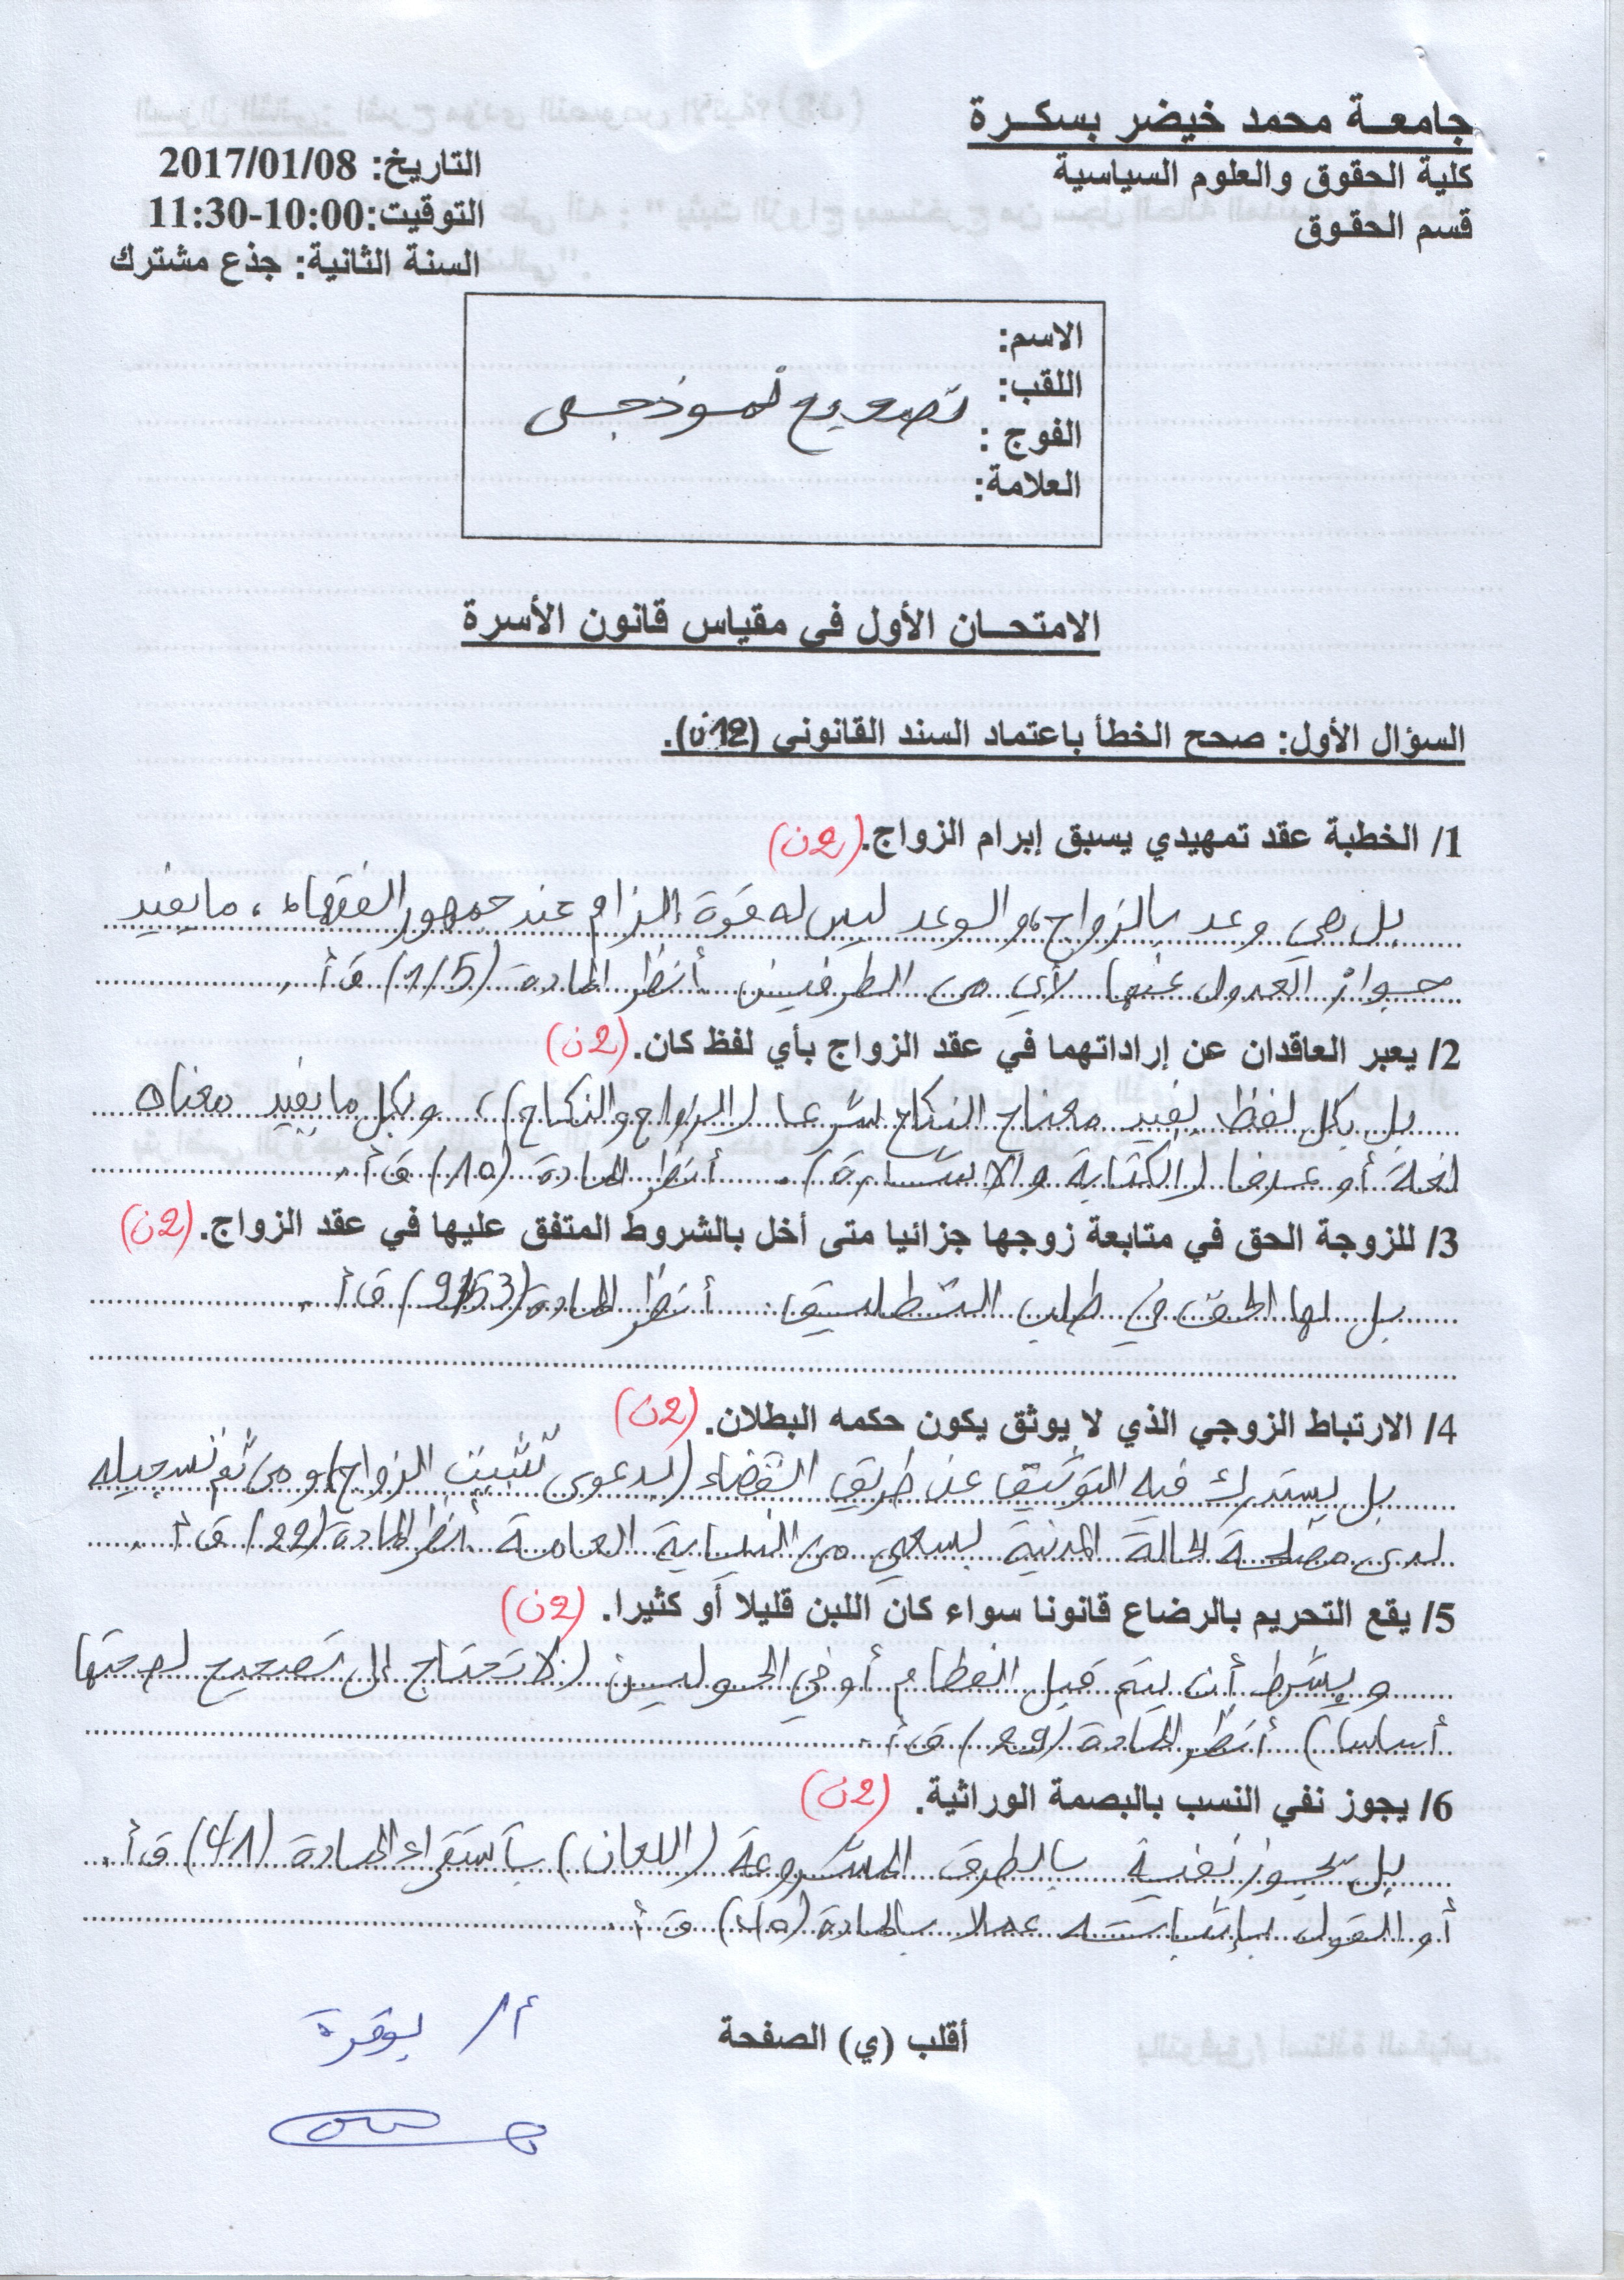 جامعة محمد خيضر بسكرة
كلية الحقوق والعلوم السياسية
قسم الحقوق
التاريخ: 2017/01/08
التوقيت:10:00-11:30
السنة الثانية: جذع مشترك
الاسم:
اللقب:
تصحيح نموذجي
الفوج :
العلامة:
الامتحان الأول في مقياس قانون الأسرة
السؤال الأول: صحح الخطأ باعتماد السند القانوني (12ن).
1/ الخطبة عقد تمهيدي يسبق إبرام الزواج. (2ن)
بل هي وعد بالزواج، والوعد ليس له قوة إلزام عند جمهور الفقهاء، ما يفيد
جواز العدول عنها لأي من الطرفين. أنظر المادة (1/5) ق أ.
2/ يعبر العاقدان عن إراداتهما في عقد الزواج بأي لفظ كان. (2ن)
بل بكل لفظ يفيد معناح النكاح شرعا (الزواج والنكاح)، وبكل ما يفيد معناه
لغة أو عرفا (الكتابة والإشارة). أنظر المادة (10) ق أ.
3/ للزوجة الحق في متابعة زوجها جزائيا متى أخل بالشروط المتفق عليها في عقد الزواج. (2ن)
بل لها الحق في طلب التطليق. أنظر المادة (9/53) ق أ.
4/ الارتباط الزوجي الذي لا يوثق يكون حكمه البطلان. (2ن)
بل يستدرك فيه التوثيق عن طريق القضاء (بدعوى تثبيت الزواج) ومن ثم تسجيله
لدى مصلحة الحالة المدنية بسعي من النيابة العامة أنظر المادة (22) ق أ.
5/ يقع التحريم بالرضاع قانونا سواء كان اللبن قليلا أو كثيرا. (2ن)
ويشترط أن يتم قبل الفطام أو في الحولين (لا تحتاج إلى تصحيح لصحتها
أساسا) أنظر المادة (29) ق أ.
6/ يجوز نفي النسب بالبصمة الوراثية. (2ن)
بل يجوز نفيه بالطرق المشروعة (اللعان) باستقراء المادة (41) ق أ.
أو القول بإثباته عملا بالمادة (40) ق أ.
أقلب (ي) الصفحة
أ/ بوقرة